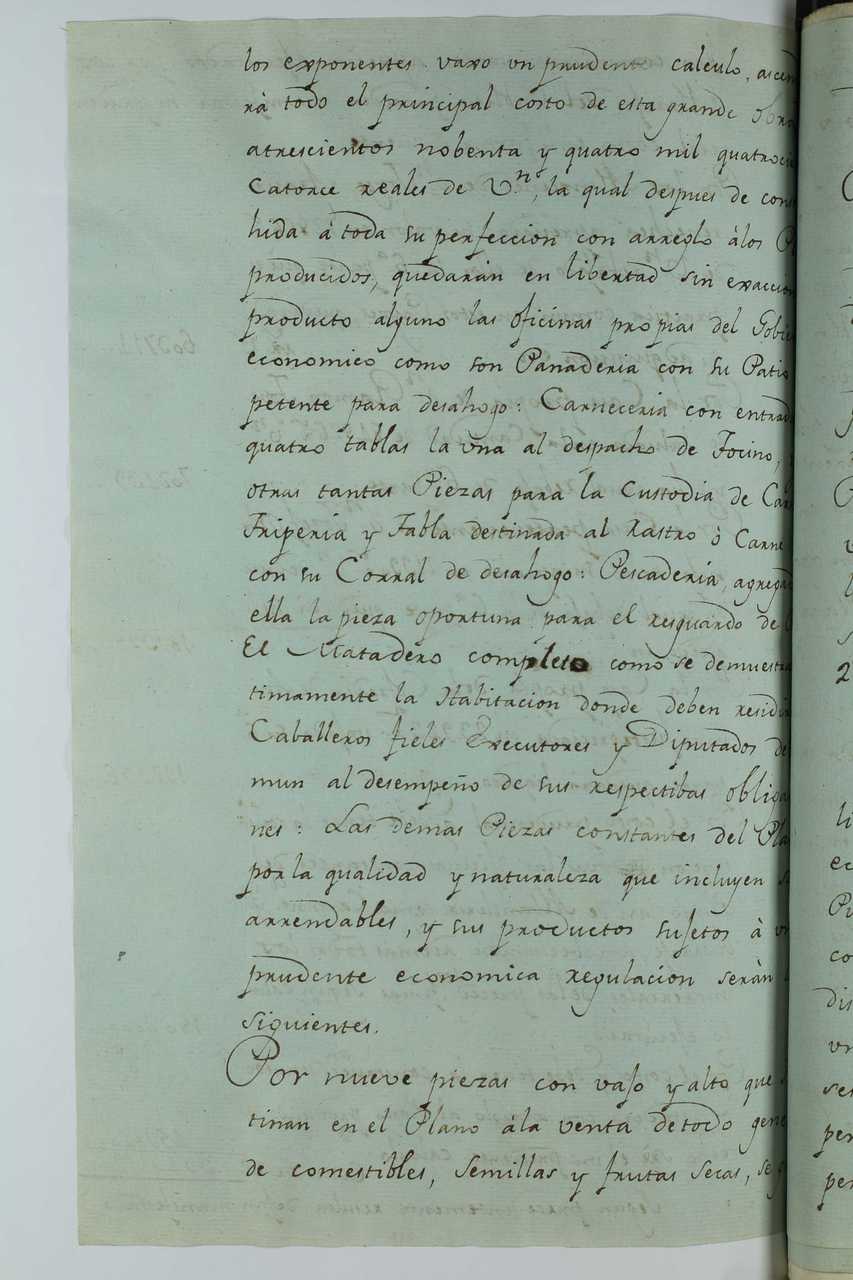 los exponentes vaxo vn prudente calculo, ascen
rà todo el principal costo de esta grande obra
atrescientos nobenta y quatro mil quatroci
Catorce reales de V.n, la qual despues de con
hida à toda su perfeccion con arreglo àlos P
producidos, quedaràn en libertad sin exaccion
producto alguno las oficinas propias del Gobie
economico como son Panaderia con su Patio
petente para desahogo: Carneceria con entrad
quatro tablas la vna al despacho de Tocino,
otras tantas Piezas para la Custodia de Car
Triperia y Tabla destinada al Rastro ò Carne
con su Corral de desahogo: Pescaderia, agrega
ella la pieza oportuna para el resguardo de
El Matadero completo como se demuestra
timamente la Habitacion donde deben residir
Caballeros fieles Executores y Diputados de
mun al desempeño de sus respectibas obliga
nes: Las demas Piezas constantes del Pla
por la qualidad y naturaleza que incluyen s
arrendables, y sus productos sujetos à vn
prudente economica regulacion seràn
siguientes.
Por nueve piezas con vajo y alto que
tinan en el Plano àla venta de todo gene
de comestibles, semillas y frutas secas, se